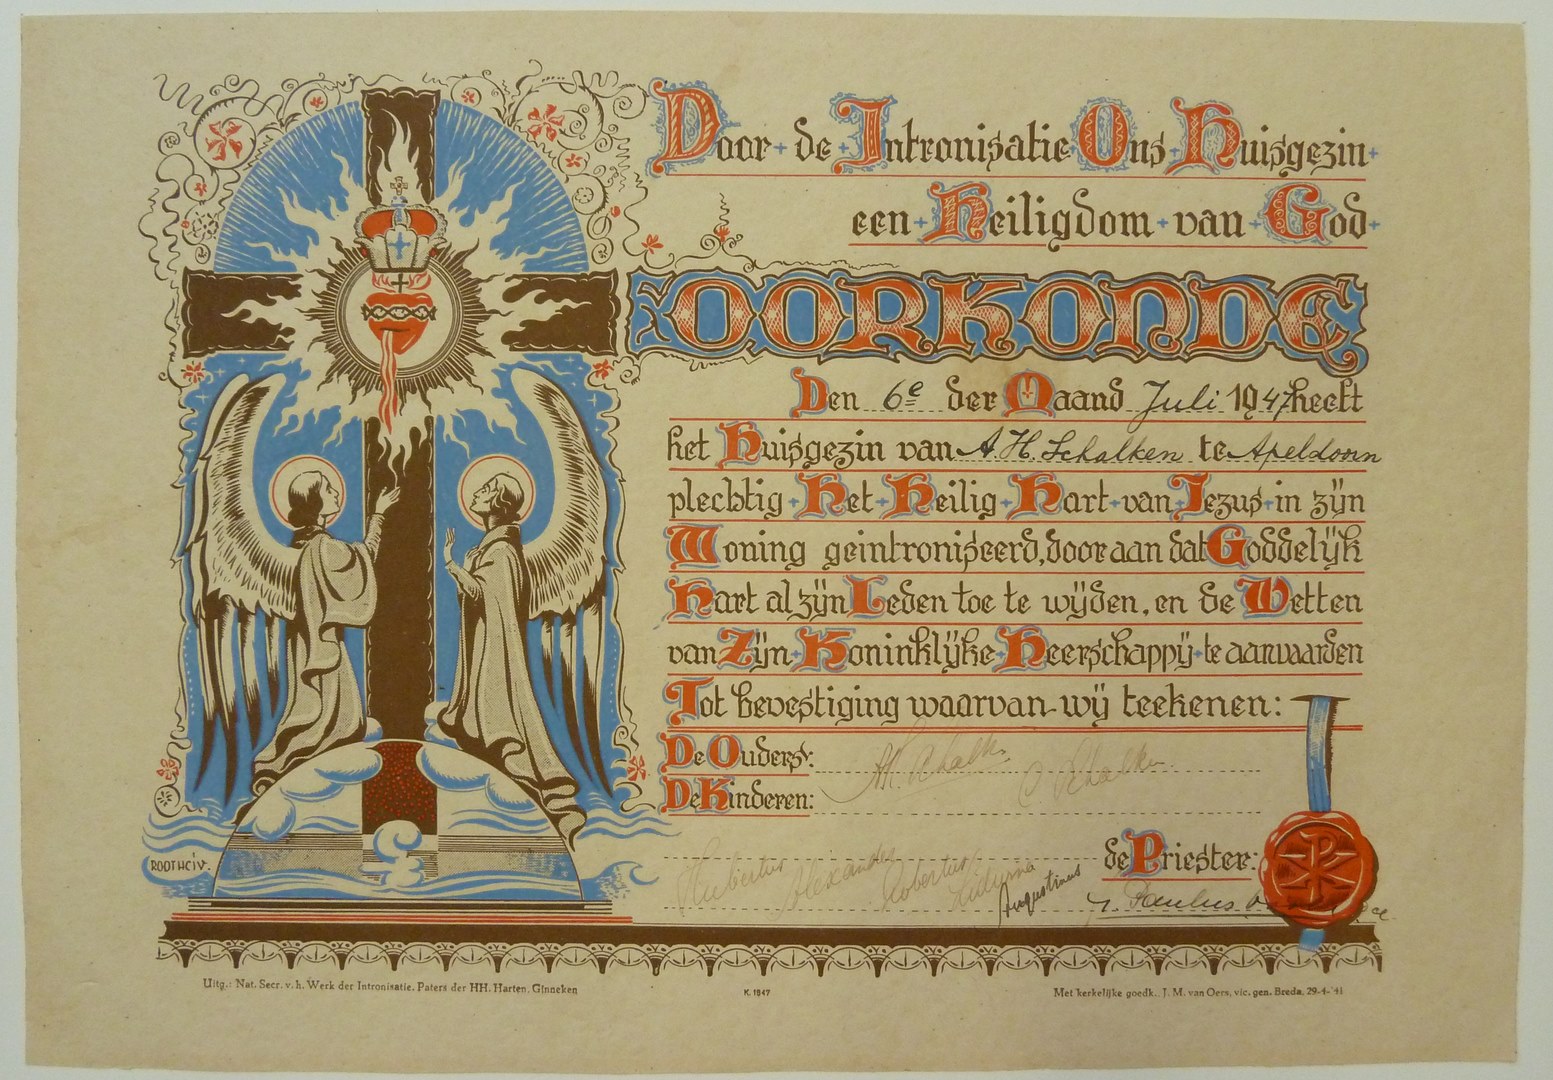 Door de Intronisatie Ons Huisgezin
een Heiligdom van God
OORKONDE
Den 6e der Maand Juli 1947 heeft
het Huisgezin van A. H. Schalken te Apeldoorn
plechtig Het Heilig Hart van Jezus in zijn
Woning geintroniseerd, door aan dat Goddelijk
Hart al zijn Leden toe te wijden, en de Wetten
van Zijn Koninklijke Heerschappij te aanvaarden
Tot bevestiging waarvan wij teekenen:
De Ouders: AH. Schalken C Schalken
De Kinderen:
de Priester:
Hubertus Alexander Robertus Liduina Augustinus
J. Paulus
ROOTHCIV.
Uitg.: Nat. Secr. v. h. Werk der Intronisatie. Paters der HH. Harten, Ginneken
K. 1847
Met kerkelijke goedk.. J. M. van Oers, vic. gen. Breda, 29-4-'41